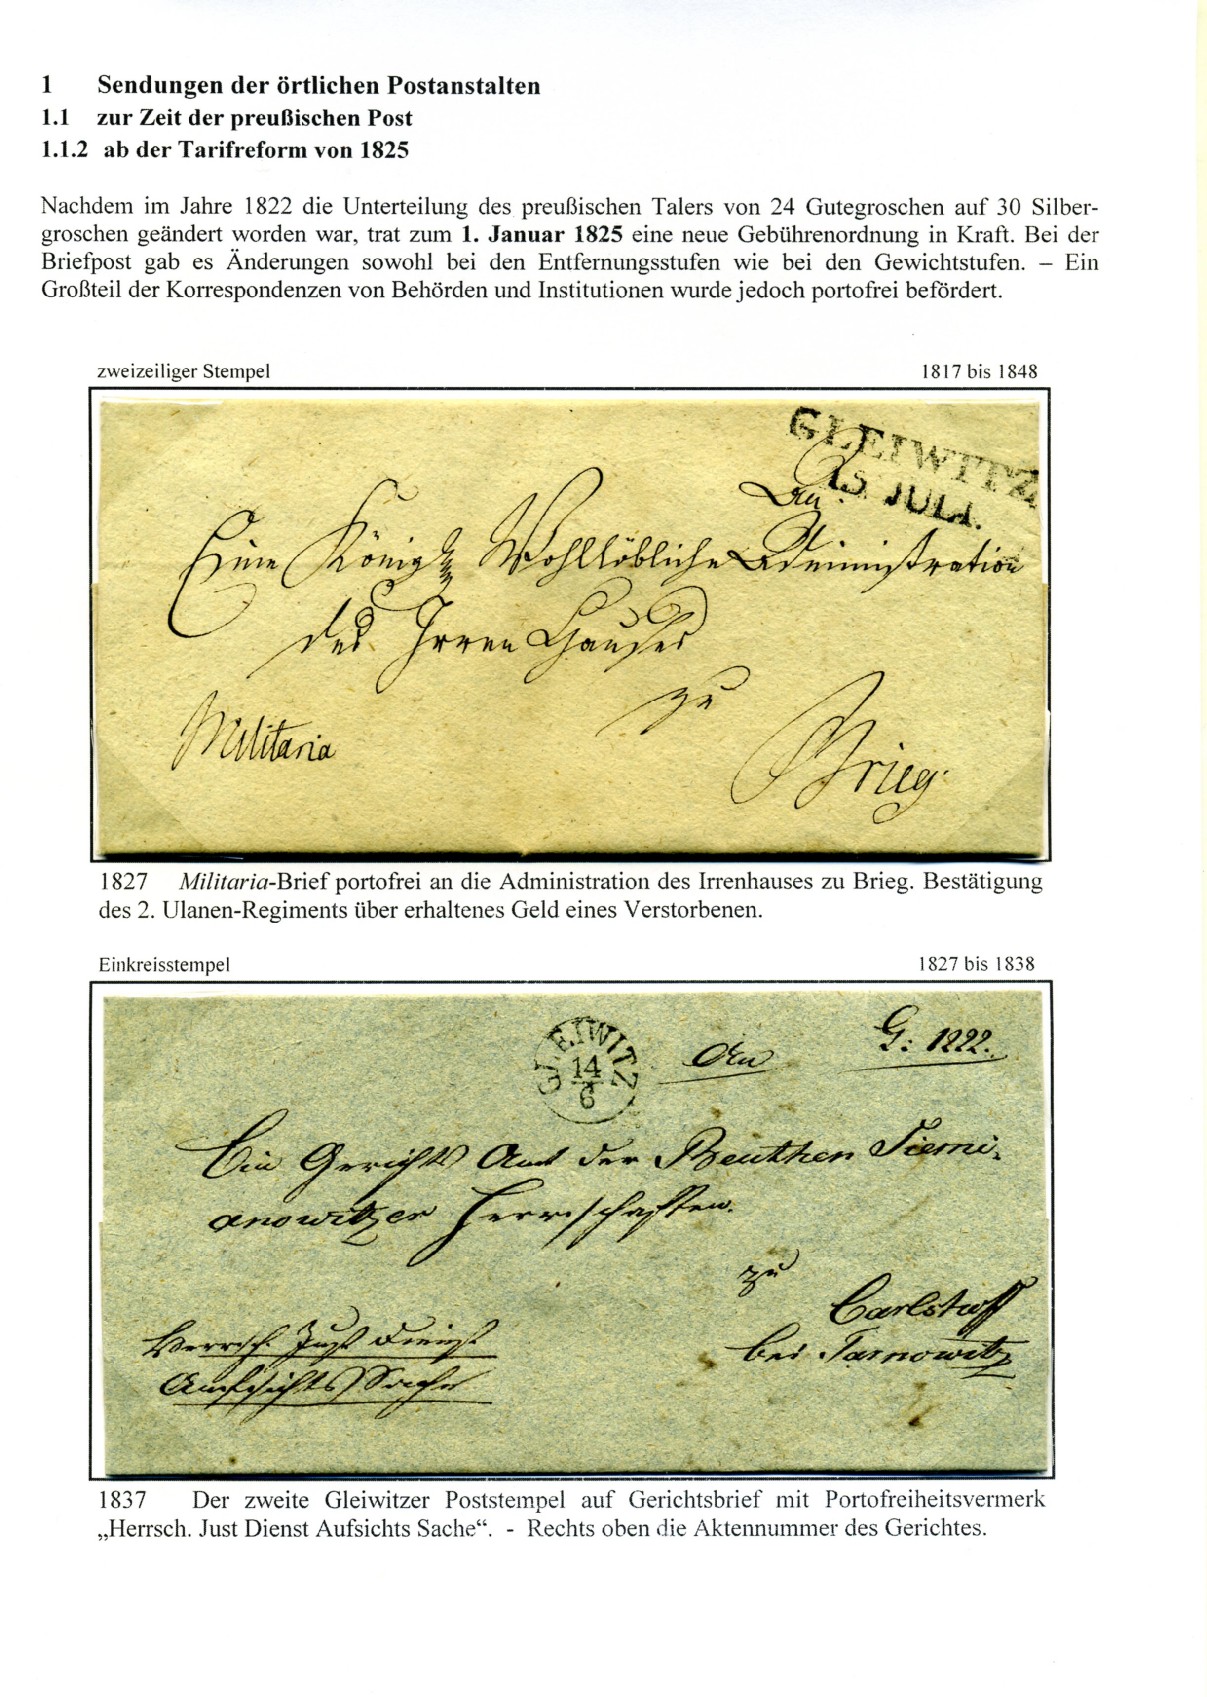 1 Sendungen der örtlichen Postanstalten
1.1 zur Zeit der preußischen Post
1.1.2 ab der Tarifreform von 1825
Nachdem im Jahre 1822 die Unterteilung des preußischen Talers von 24 Gutegroschen auf 30 Silber-
groschen geändert worden war, trat zum 1. Januar 1825 eine neue Gebührenordnung in Kraft. Bei der
Briefpost gab es Änderungen sowohl bei den Entfernungsstufen wie bei den Gewichtstufen. – Ein
Großteil der Korrespondenzen von Behörden und Institutionen wurde jedoch portofrei befördert.
zweizeiliger Stempel 1817 bis 1848
GLEIWITZ
15 JULI.
An
Eine Königl Wohllöbliche Administration
des Irren Hauses
zu
Militaria
Brieg.
1827 Militaria-Brief portofrei an die Administration des Irrenhauses zu Brieg. Bestätigung
des 2. Ulanen-Regiments über erhaltenes Geld eines Verstorbenen.
Einkreisstempel 1827 bis 1838
GLEIWITZ
14
6
An
G: 1222.
Ein Gerichts Amt der Beuthen Siemi-
anowitzer Herrschaften.
zu
Carlshoff
bei Tarnowitz
Herrsch. Just Dienst
Aufsichts Sache
1837 Der zweite Gleiwitzer Poststempel auf Gerichtsbrief mit Portofreiheitsvermerk
„Herrsch. Just Dienst Aufsichts Sache“. - Rechts oben die Aktennummer des Gerichtes.